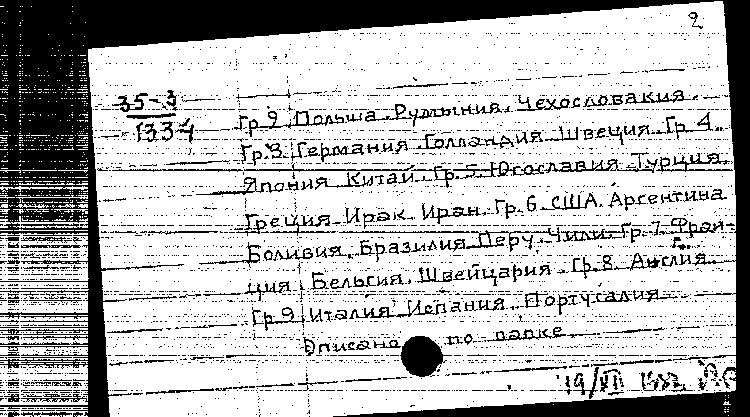 2
35-3
1334
Гр. 2. Польша. Румыния. Чехословакия.
Гр. 3. Германия. Голландия. Швеция. Гр. 4.
Япония. Китай. Гр. 5. Югославия. Турция.
Греция. Ирак. Иран. Гр. 6. США. Аргентина
Боливия. Бразилия. Перу. Чили. Гр. 7. Фран-
ция. Бельгия. Швейцария. Гр. 8. Англия.
Гр. 9. Италия. Испания. Португалия.
Описано по папке.
19/VII